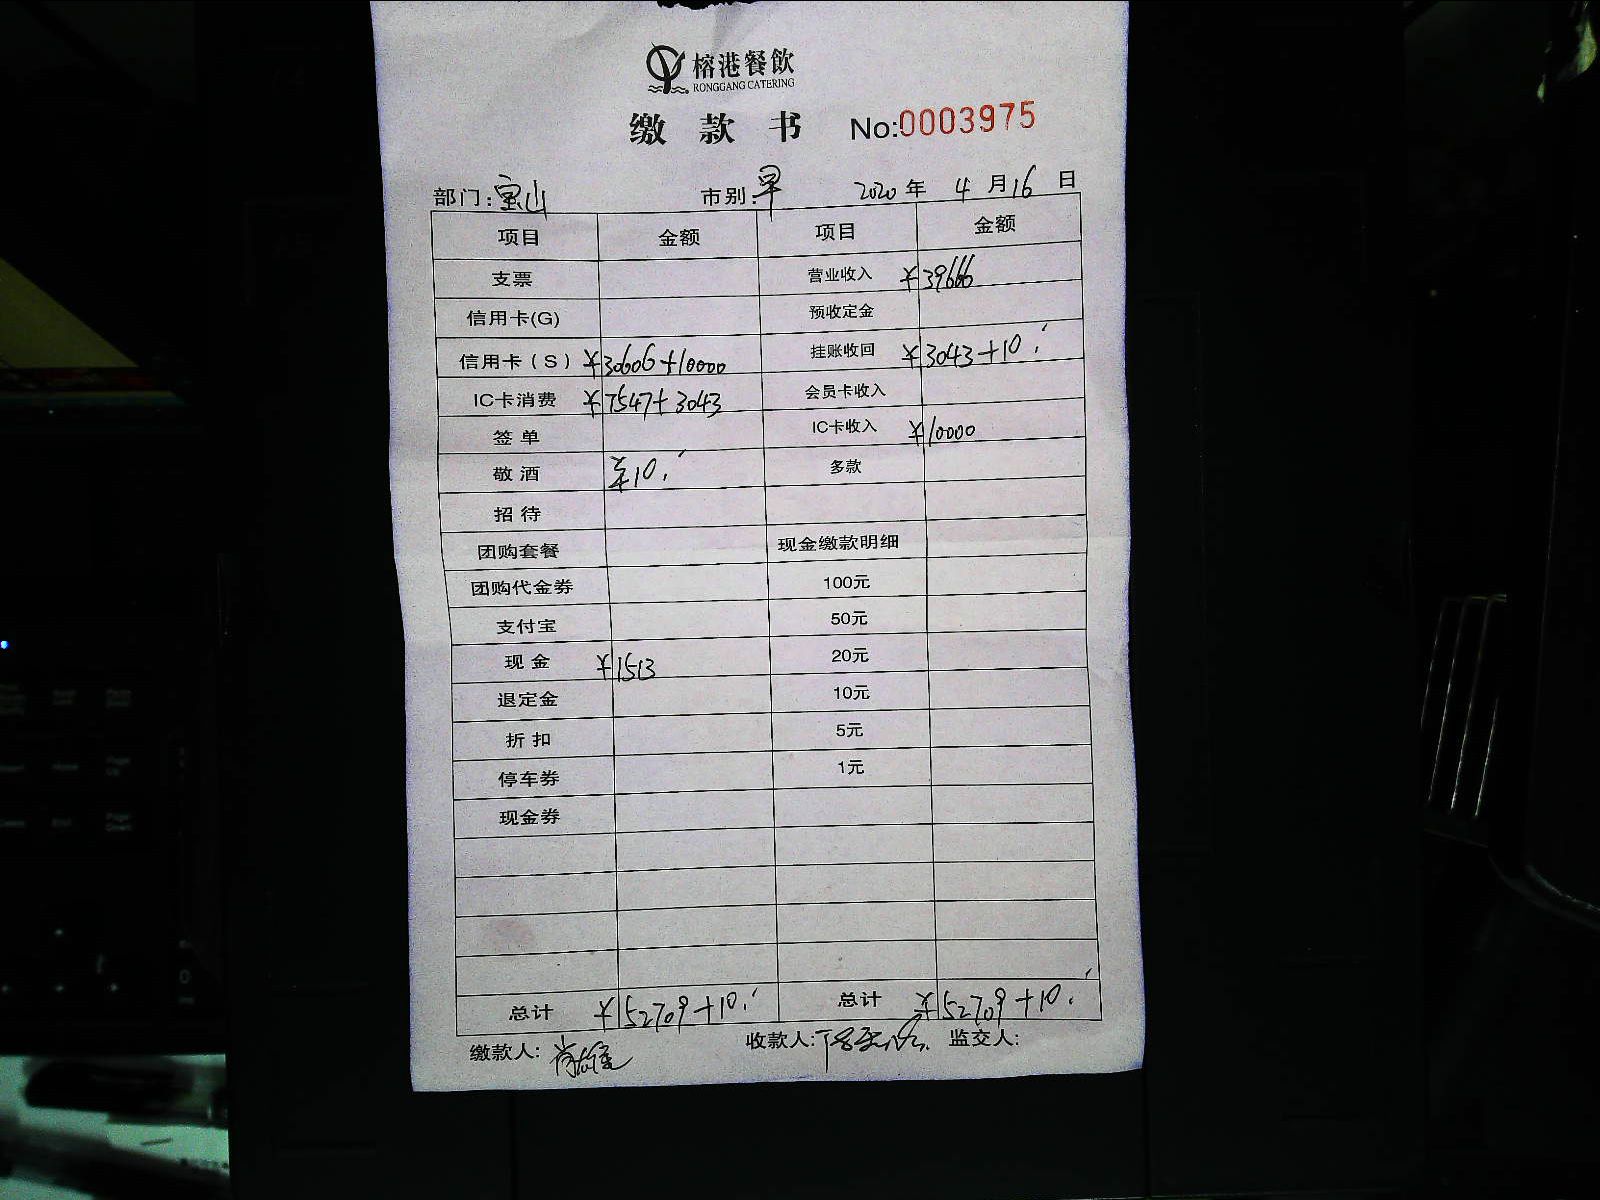 榕港餐饮
RONGGANG CATERING
缴款书 No:0003975
部门:宝山 市别:早 2020年4月16日
项目 金额 项目 金额
支票 营业收入 ¥39666
信用卡(G) 预收定金
信用卡(S) ¥30606+10000 挂账收回 ¥3043+10.
IC卡消费 ¥7547+3043 会员卡收入
签单 IC卡收入 ¥10000
敬酒 ¥10. 多款
招待
团购套餐 现金缴款明细
团购代金券 100元
支付宝 50元
现金 ¥1513 20元
退定金 10元
折扣 5元
停车券 1元
现金券
总计 ¥52709+10. 总计 ¥52709+10.
缴款人: 收款人: 监交人: